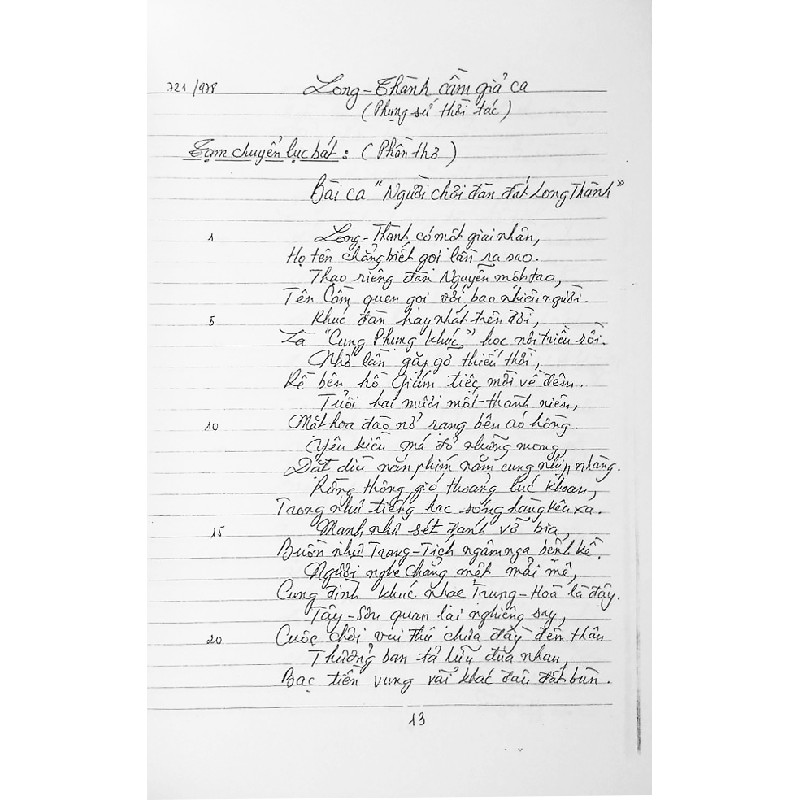 721/978
Long-Thành cầm giả ca
(Phụng sứ thời tác)
Tạm chuyển lục bát: (Phần thơ)
Bài ca "Người chơi đàn đất Long Thành"
1 Long-Thành có một giai nhân,
Họ tên chẳng biết gọi lần ra sao.
Thạo riêng đàn Nguyễn một tao,
Tên Cầm quen gọi với bao nhiêu người.
5 Khúc đàn hay nhất trên đời,
Là "Cung Phụng khúc" học nơi triều rồi.
Nhớ lần gặp gỡ thiếu thời,
Kề bên hồ Giám tiệc mời về đêm.
Tuổi hai mươi mốt thanh niên,
10 Mặt hoa đào nở rạng bên áo hồng.
Yêu kiều má đỏ những mong,
Dặt dìu năm phím năm cung nhịp nhàng.
Rồng thông gió thoảng lúc khoan,
Trong như tiếng hạc sông đàng kêu xa.
15 Mạnh như sét đánh vỡ bia,
Buồn như Trang-Tích ngâm nga bệnh kề.
Người nghe chẳng mệt mải mê,
Cung đình khúc nhạc Trung-Hoà là đây.
Tây-Sơn quan lại nghiêng say,
20 Cuộc chơi vui thú chưa đầy đến thâu
Thưởng ban tả hữu đua nhau,
Bạc tiền vung vãi khác đâu đất bùn.
13